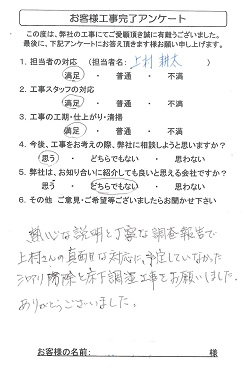 お客様工事完了アンケート
この度は、弊社の工事にてご愛顧頂き誠に有難うございました。
最後に、下記アンケートにお答え頂きます様お願い申し上げます。
1. 担当者の対応 (担当者名: 上村 耕太 )
満足 ・ 普通 ・ 不満
2. 工事スタッフの対応
満足 ・ 普通 ・ 不満
3. 工事の工期・仕上がり・清掃
満足 ・ 普通 ・ 不満
4. 今後、工事をお考えの際、弊社に相談しようと思いますか?
思う ・ どちらでもない ・ 思わない
5. 弊社は、お知り合いに紹介しても良いと思える会社ですか?
思う ・ どちらでもない ・ 思わない
6. その他 ご意見・ご希望等ございましたらお聞かせ下さい
熱心な説明と丁寧な調査報告で
上村さんの真面目な対応に、予定していなかった
シロアリ防除と床下調湿工事をお願いしました。
ありがとうございました。
お客様の名前: 様